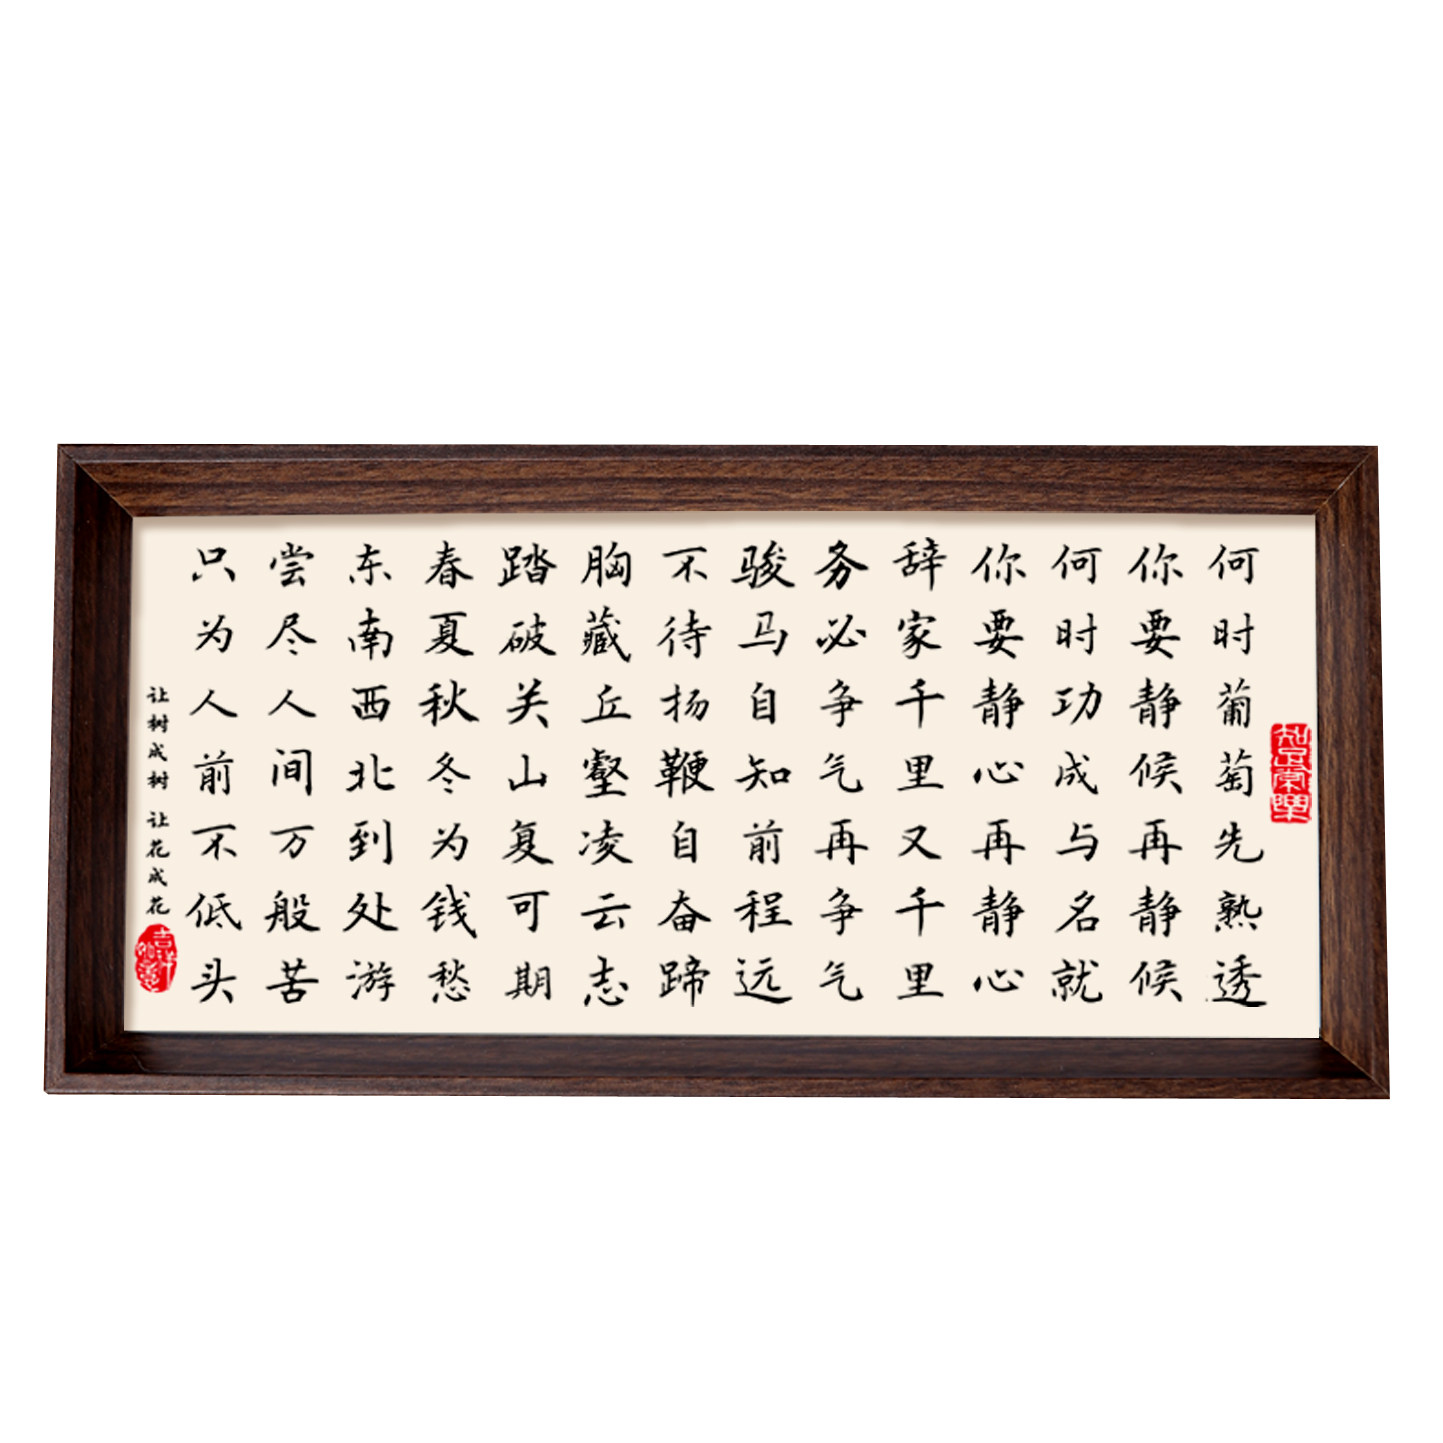 何时葡萄先熟透
你要静候再静候
何时功成与名就
你要静心再静心
辞家千里又千里
务必争气再争气
骏马自知前程远
不待扬鞭自奋蹄
胸藏丘壑凌云志
踏破关山复可期
春夏秋冬为钱愁
东南西北到处游
尝尽人间万般苦
只为人前不低头
让树成树 让花成花
知足常乐